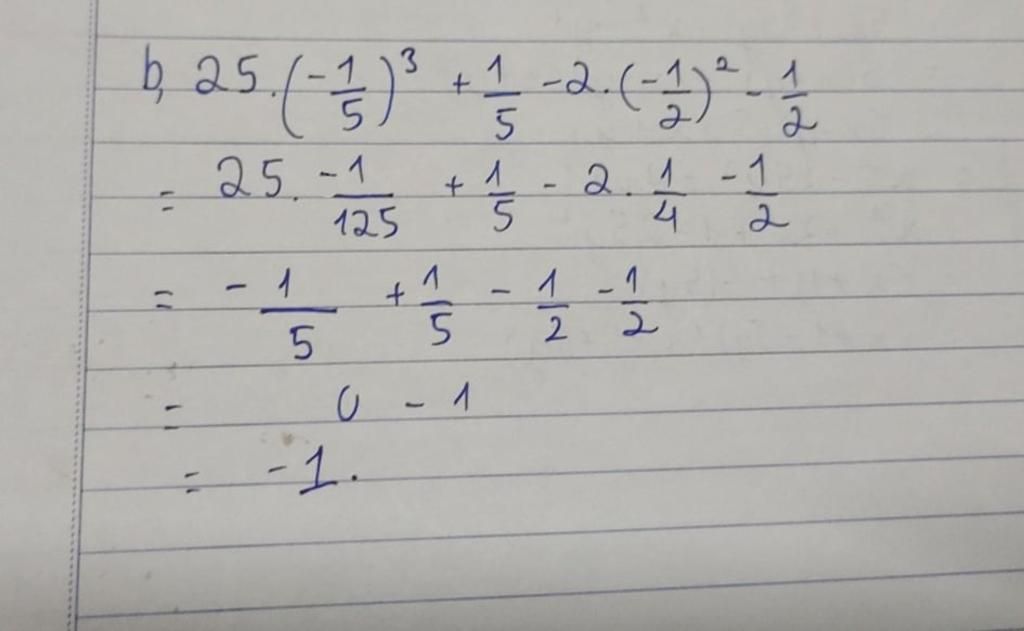 b, 25.(-1/5)³ + 1/5 - 2.(-1/2)² - 1/2
= 25. -1/125 + 1/5 - 2. 1/4 - 1/2
= -1/5 + 1/5 - 1/2 - 1/2
= 0 - 1
= -1.